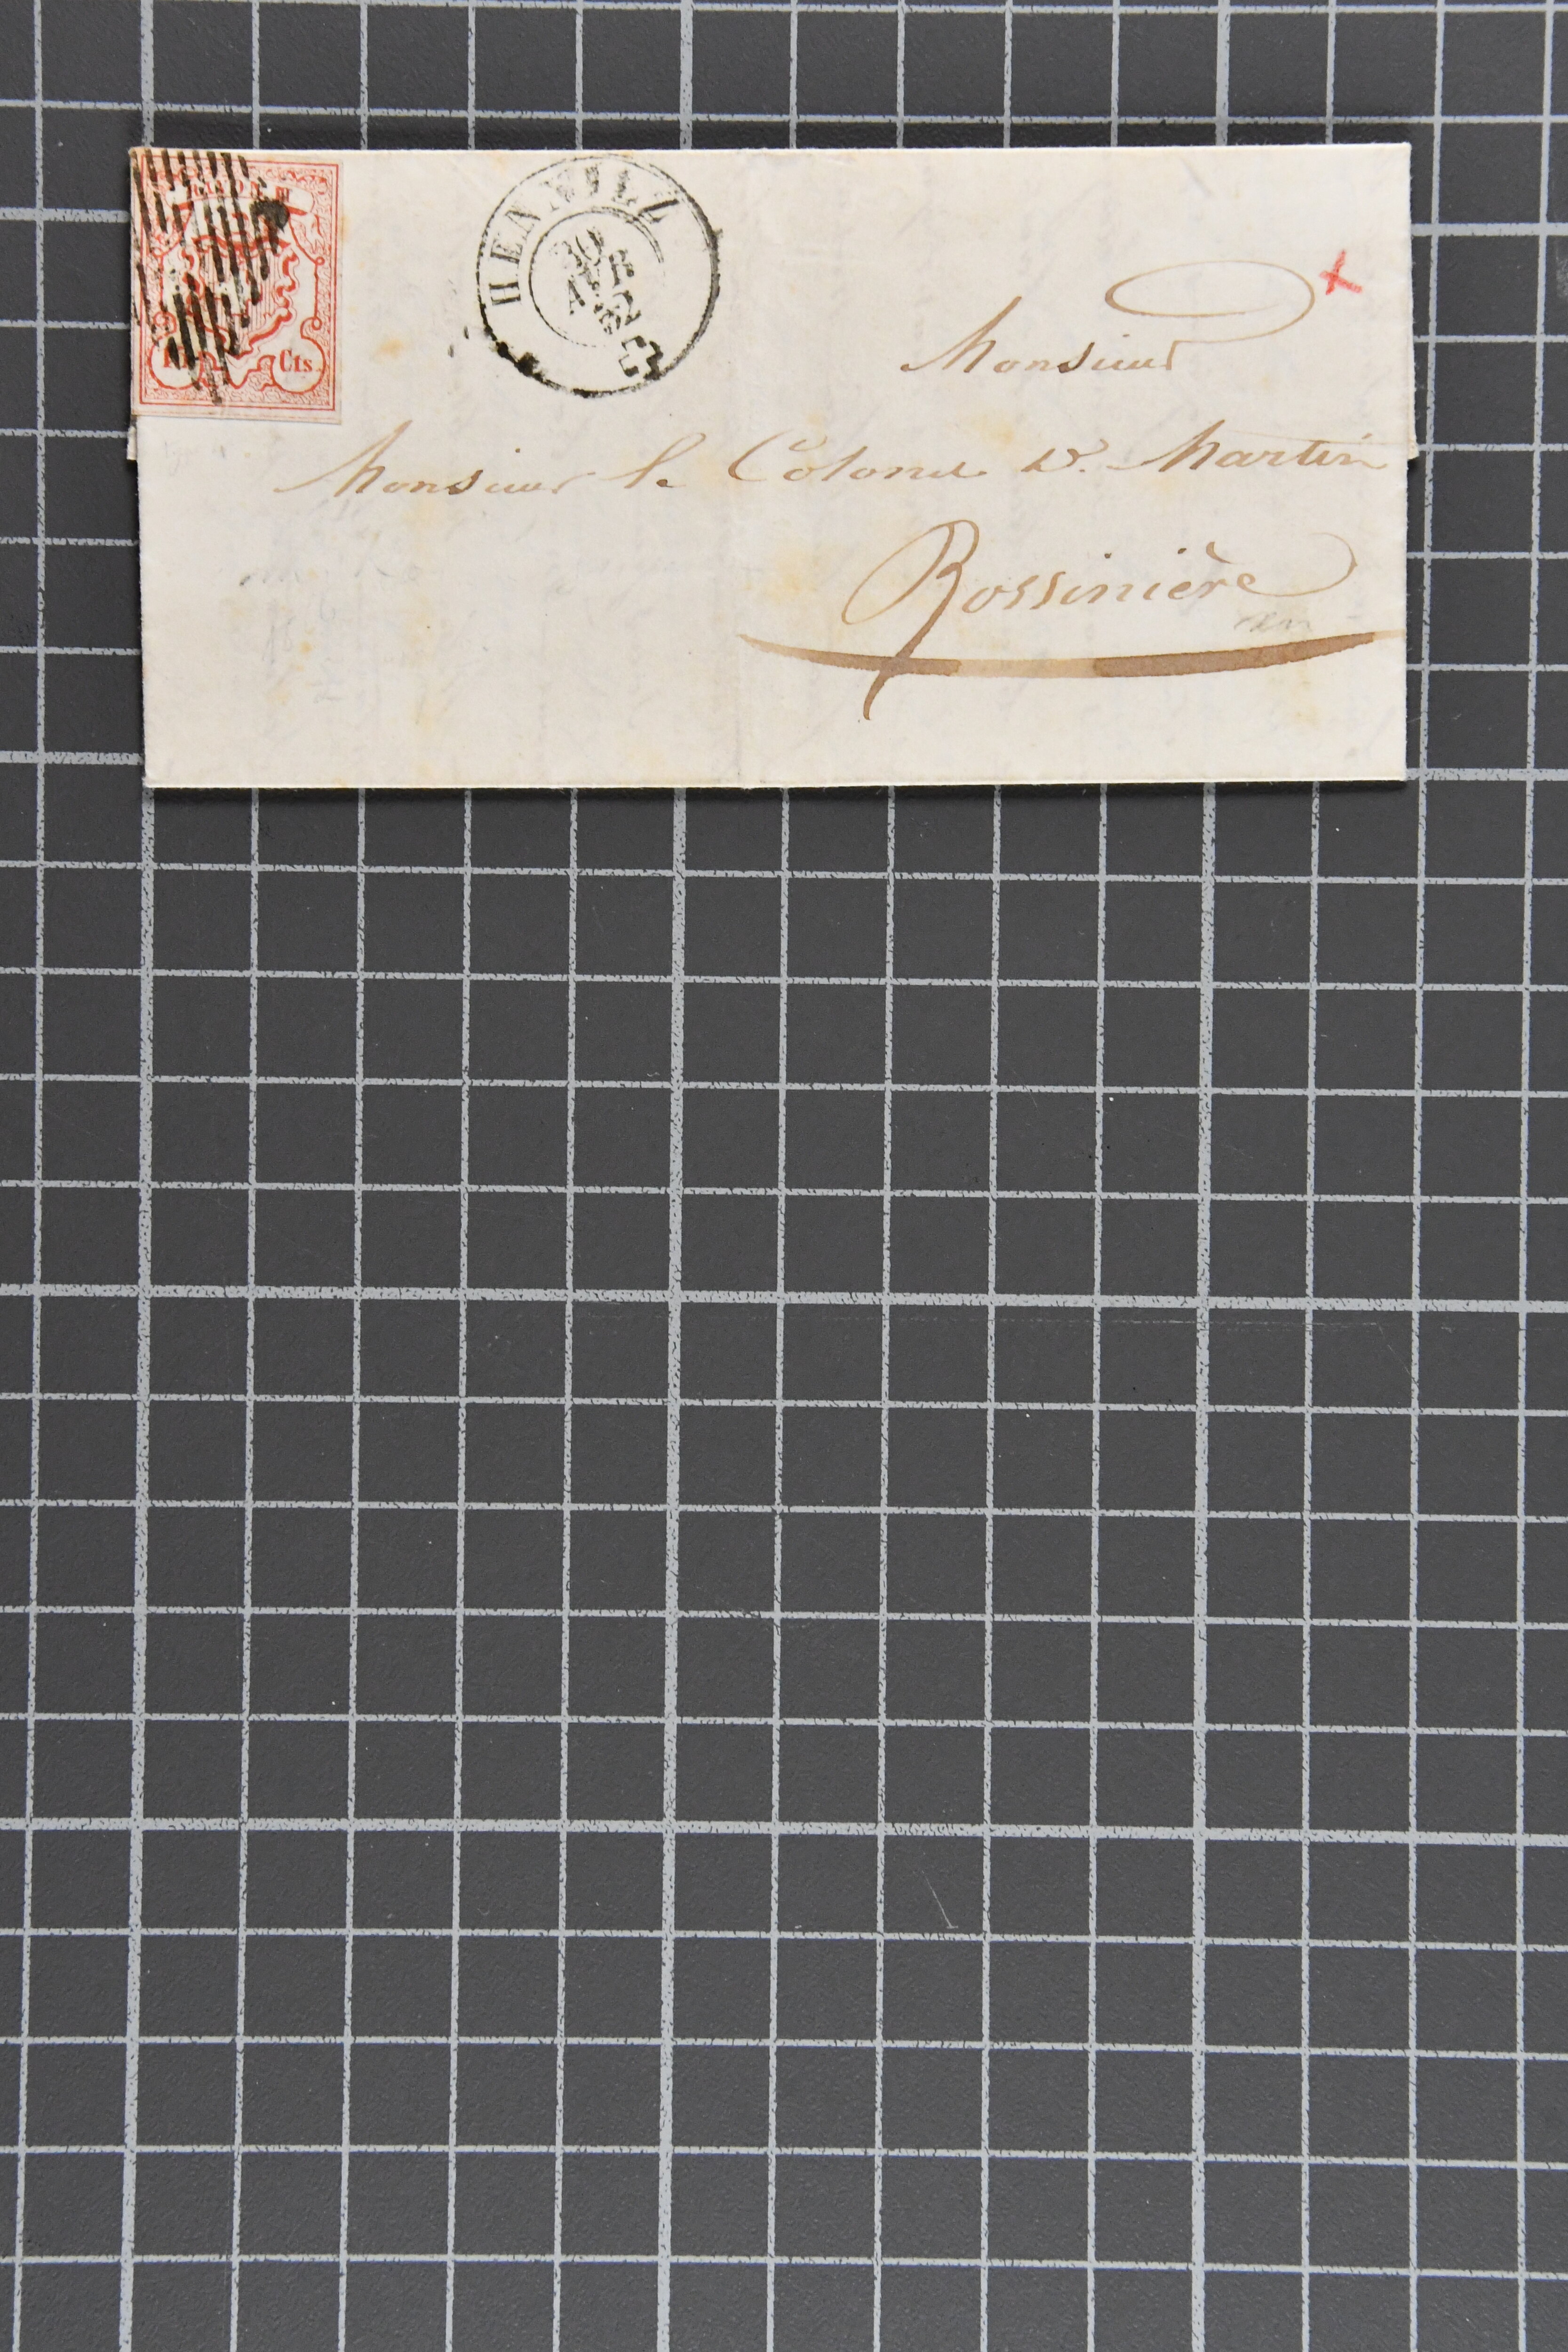 HENNIEZ
Cts.
Monsieur
Monsieur le Colonel D. Martin
Rossinière